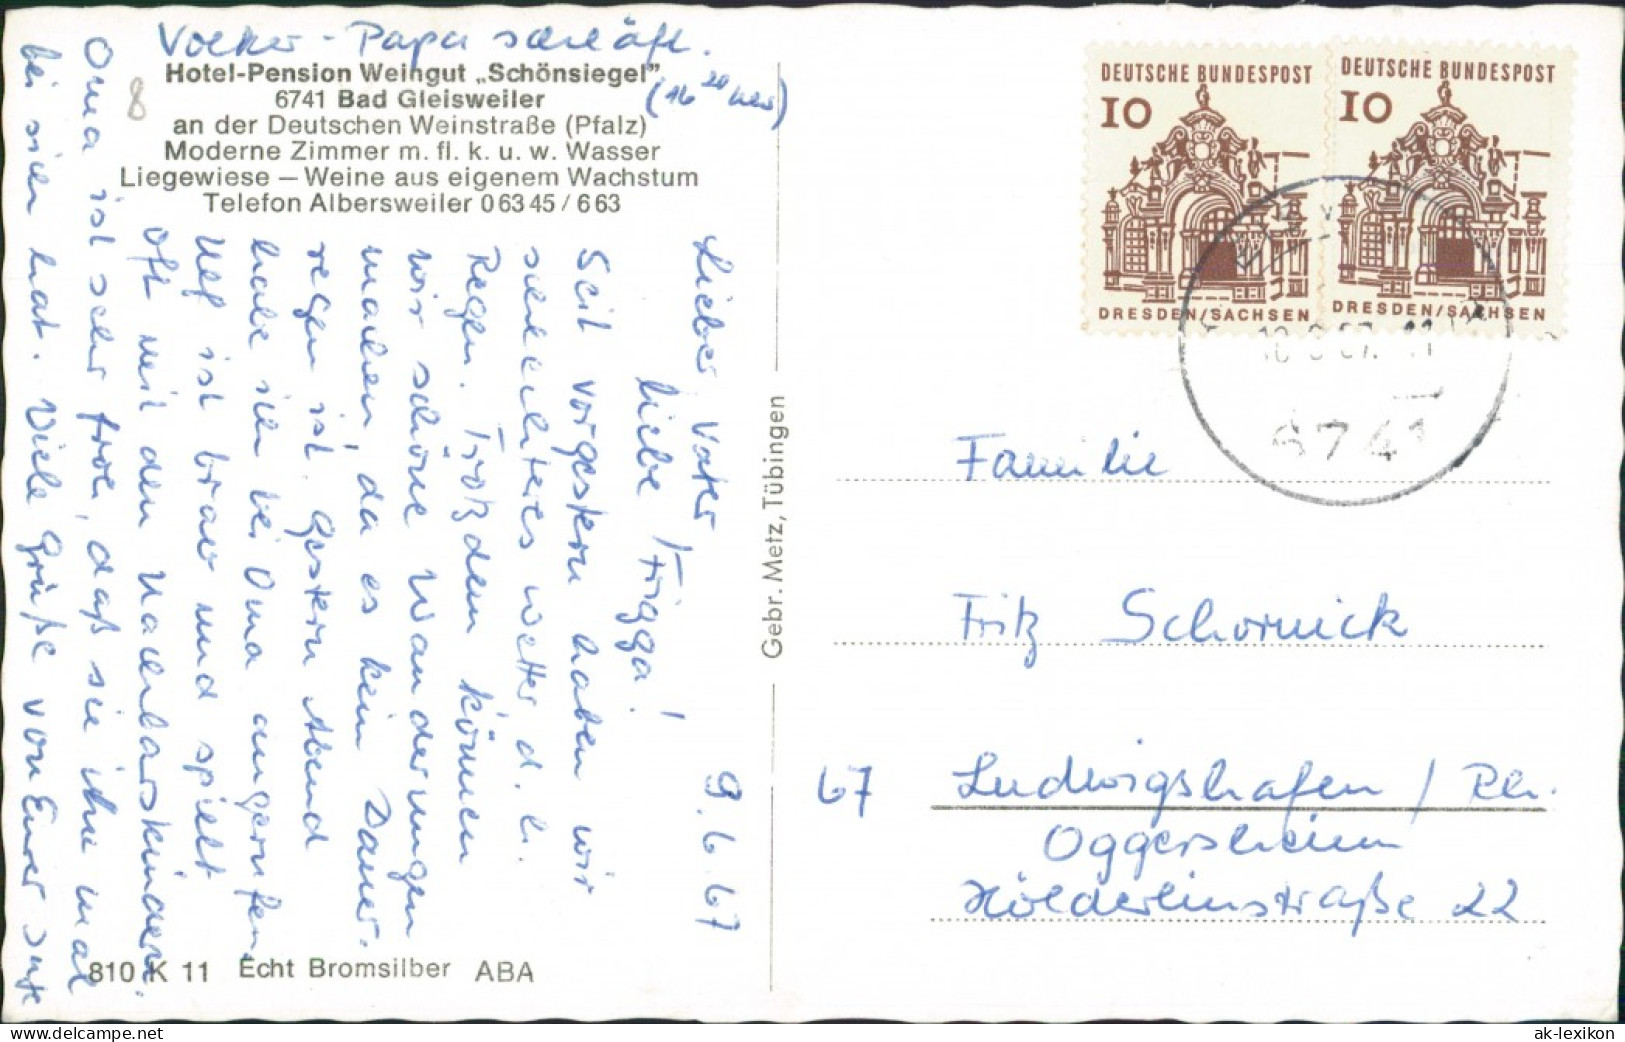 Volker - Papa schläft.
(16 20 Uhr)
Hotel-Pension Weingut „Schönsiegel"
6741 Bad Gleisweiler
an der Deutschen Weinstraße (Pfalz)
Moderne Zimmer m. fl. k. u. w. Wasser
Liegewiese — Weine aus eigenem Wachstum
Telefon Albersweiler 0 63 45 / 6 63
8
9.6.67
Lieber Vater,
liebe Frigga!
Seit vorgestern haben wir
schlechteres Wetter, d. h.
Regen. Trotzdem können
wir schöne Wanderungen
machen, da es kein Dauer-
regen ist. Gestern Abend
habe ich bei Oma angerufen,
Ulf ist brav und spielt
oft mit den Nachbarskindern.
Oma ist sehr froh, daß sie ihn mal
bei sich hat. Viele Grüße von Eurer
810 K 11 Echt Bromsilber ABA
Gebr. Metz, Tübingen
DEUTSCHE BUNDESPOST
10
DRESDEN/SACHSEN
DEUTSCHE BUNDESPOST
10
DRESDEN/SACHSEN
6741
Familie
Fritz Schornick
67 Ludwigshafen / Rh.
Oggersheim
Hölderlinstraße 22
www.delcampe.net
ak-lexikon